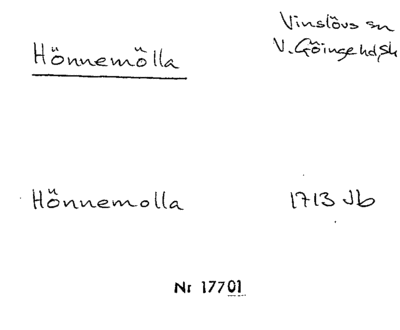 Vinslövs sn
Hönnemölla
V. Göinge hd, Sk
Hönnemolla 1713 Jb
Nr 17701